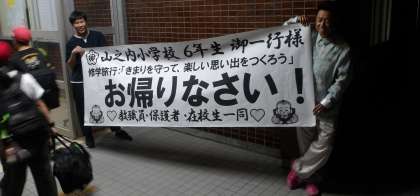 山之内小学校 6年生 御一行様
修学旅行:「きまりを守って、楽しい思い出をつくろう」
お帰りなさい!
♡教職員・保護者・在校生一同♡